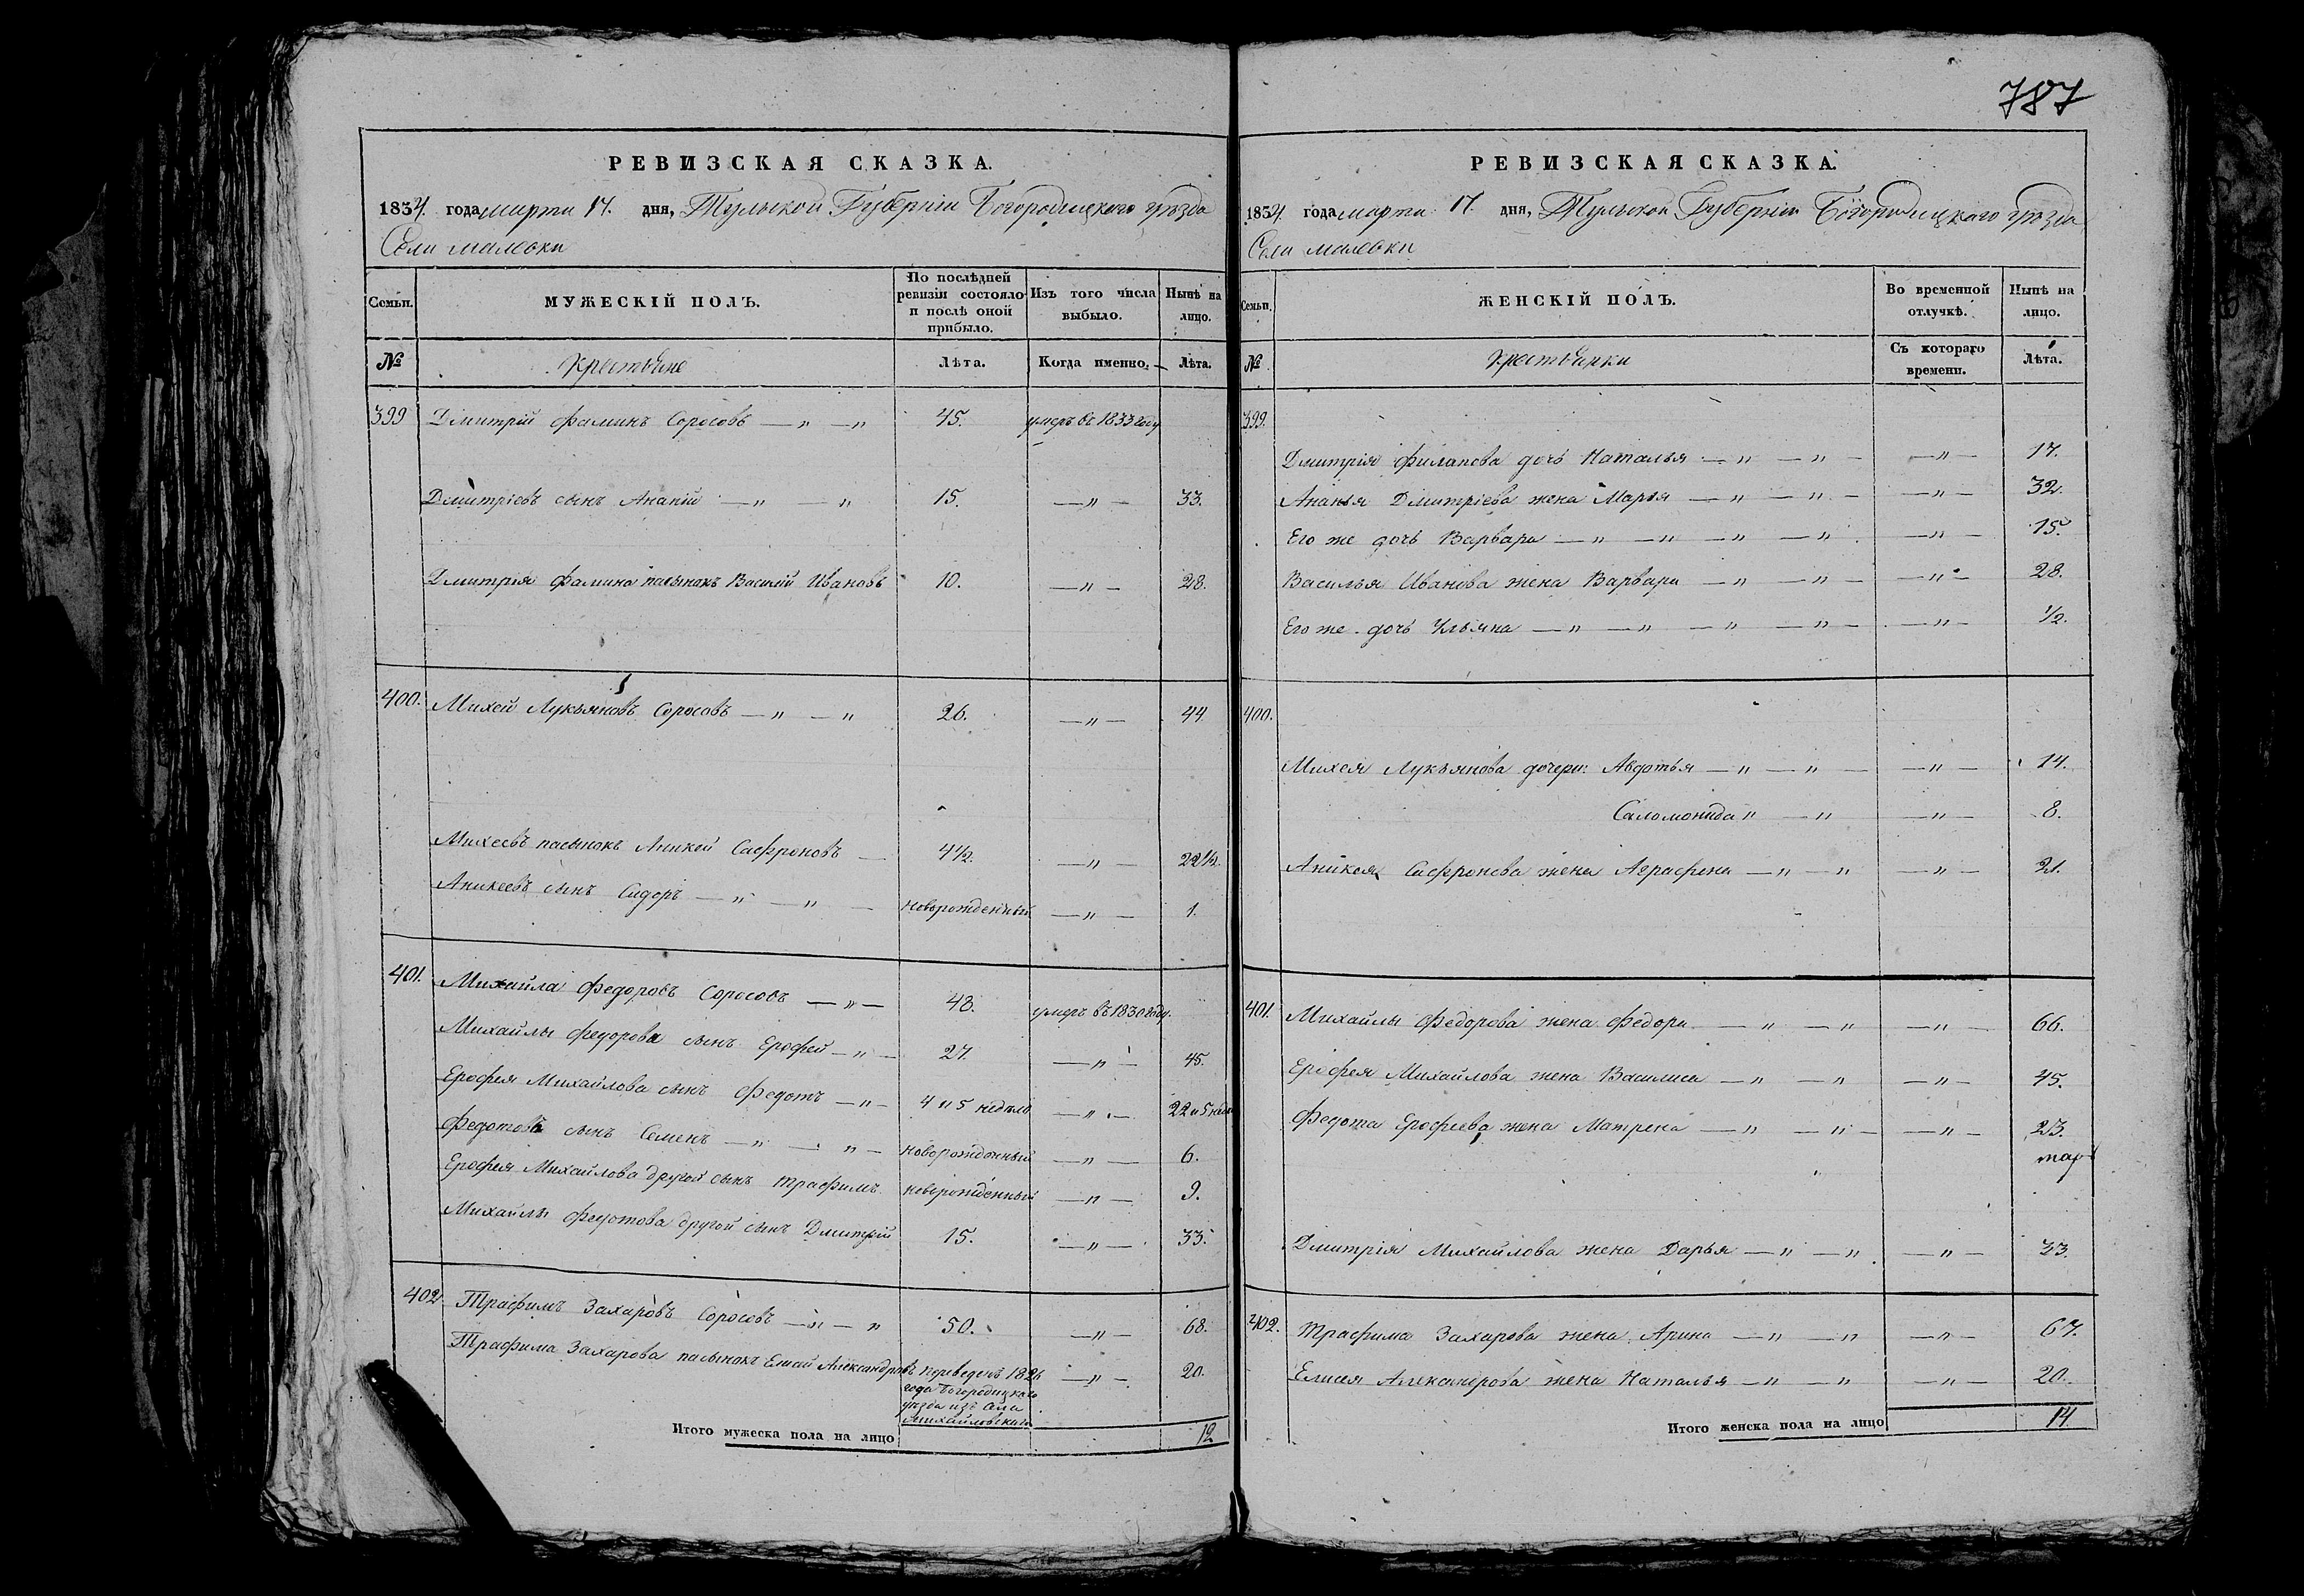 787
РЕВИЗСКАЯ СКАЗКА.
1834 года марта 17. дня, Тульской Губерніи Богородицкаго уѣзда
Села малевки
Семьи.
МУЖЕСКІЙ ПОЛЪ.
По послѣдней ревизіи состояло и послѣ оной прибыло.
Изъ того числа выбыло.
Нынѣ на лицо.
№
крестьяне
Лѣта.
Когда именно.
Лѣта.
399 Дмитрій Фаминъ Соросовъ — „ — „ 45. умеръ въ 1833 году
Дмитріевъ сынъ Ананій — „ — „ 15. — „ — 33.
Дмитрія Фамина пасынокъ Василій Ивановъ 10. — „ — 28.
400. Михей Лукьяновъ Соросовъ — „ — „ 26. — „ — 44.
Михеевъ пасынокъ Аникей Сафроновъ — 4½. — „ — 22½.
Аникеевъ сынъ Сидоръ — „ — „ — новорожденный — „ — 1.
401. Михайла Федоровъ Соросовъ — „ — 48. умеръ въ 1830 году.
Михайлы Федорова сынъ Ерофей — „ — 27. — „ — 45.
Ерофея Михайлова сынъ Федотъ — „ — 4 и 5 недель — „ — 22 и 5 неде
Федотовъ сынъ Семенъ — „ — „ — новорожденный — „ — 6.
Ерофея Михайлова другой сынъ Трафимъ новорожденный — „ — 9.
Михайлы Федотова другой сынъ Дмитрій 15. — „ — 33.
402. Трафимъ Захаровъ Соросовъ — „ — „ 50. — „ — 68.
Трафима Захарова пасынокъ Елисей Александровъ переведенъ 1826 — „ — 20.
года Богородицкого
уѣзда изъ села
Михайловскаго
Итого мужеска пола на лицо 12
РЕВИЗСКАЯ СКАЗКА.
1834 года марта 17. дня, Тульской Губерніи Богородицкаго уѣзда
Села малевки
Семьи.
ЖЕНСКІЙ ПОЛЪ.
Во временной отлучкѣ.
Нынѣ на лицо.
№
крестьянки
Съ котораго времени.
Лѣта.
399.
Дмитрія Филапова дочь Наталья — „ — „ — — „ — 17.
Ананья Дмитріева жена Марья — „ — „ — — „ — 32.
Его же дочь Варвара — „ — „ — „ — „ — „ — 15.
Василья Иванова жена Варвара — „ — „ — — „ — 28.
Его же дочь Ульяна — „ — „ — „ — „ — — „ — ½.
400.
Михея Лукьянова дочери: Авдотья — „ — „ — — „ — 14.
Саломонида „ — „ — „ — 8.
Аникея Сафронова жена Аграфена — „ — „ — „ — 21.
401. Михайлы Федорова жена Федора — „ — „ — „ — 66.
Ерофея Михайлова жена Василиса — „ — „ — „ — 45.
Федота Ерофеева жена Матрена — „ — „ — — „ — 23.
Дмитрія Михайлова жена Дарья — „ — „ — „ — 33.
402. Трафима Захарова жена Арина — „ — „ — „ — 67.
Елисея Александрова жена Наталья — „ — „ — „ — 20.
Итого женска пола на лицо 14